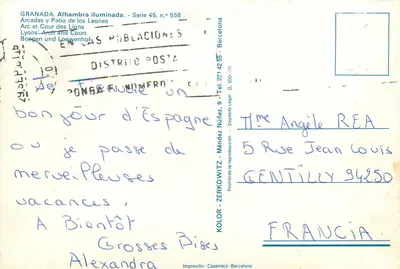 GRANADA. Alhambra iluminada. - Serie 45, n.º 558
Arcadas y Patio de los Leones
Arc et Cour des Lions
Lyons' Arch and Court
Bogen und Loewenhof
EN LAS POBLACIONES
DISTRITO POSTA
PONGA EL NUMERO
un
bonjour d'Espagne
où je passe de
merveilleuses
vacances,
A Bientôt
Grosses Bises
Alexandra
KOLOR - ZERKOWITZ - Méndez Núñez, 9 - Tel. 221 42 55 - Barcelona
Prohibida la reproducción
Depósito Legal B.
Mme Angèle REA
5 Rue Jean Louis
GENTILLY 94250
FRANCIA
Impresión: Casamajó - Barcelona